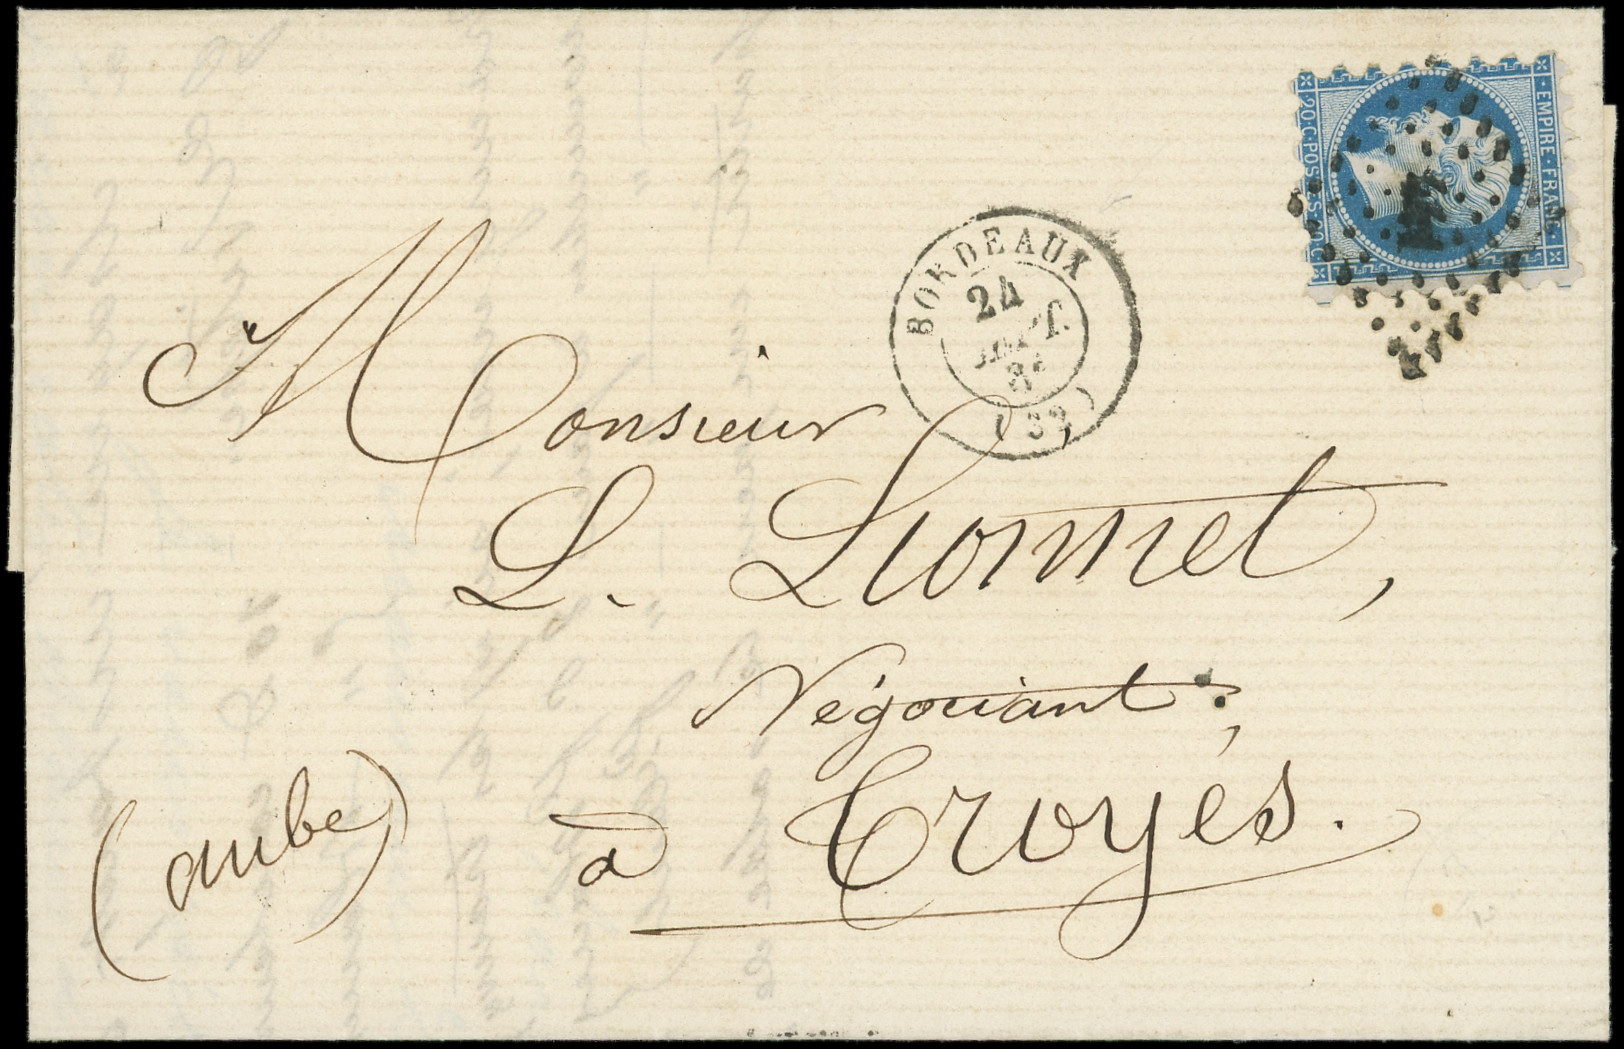 EMPIRE·FRANC·
20·C·POSTES·20·C
BORDEAUX
24
(32)
Monsieur
L. Lionnet,
Négociant,
à Troyes.
(aube)